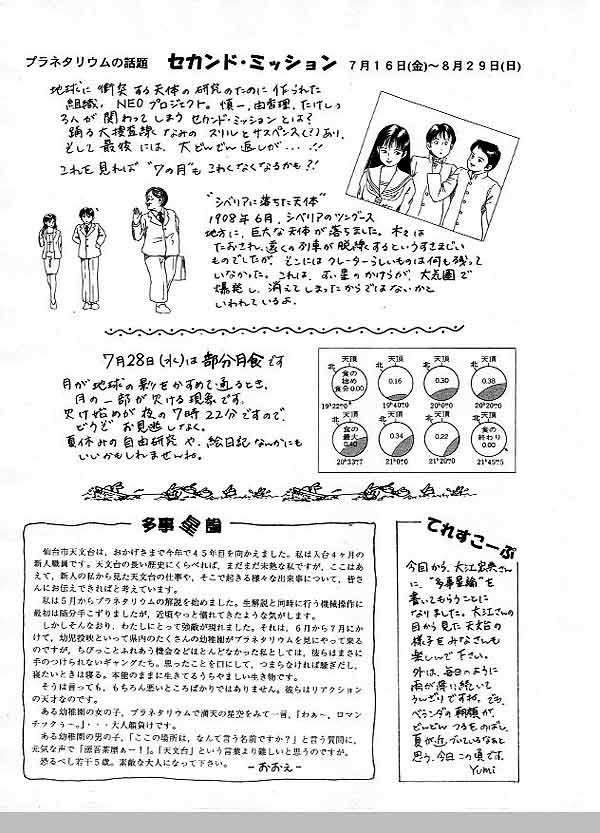 プラネタリウムの話題 セカンド・ミッション 7月16日(金)～8月29日(日)
地球に衝突する天体の研究のために作られた
組織、NEOプロジェクト。慎一、由香理、たけしの
3人が関わってしまうセカンド・ミッションとは?
踊る大捜査線なみのスリルとサスペンス(?)あり、
そして最後には、大どんでん返しが・・・・!!
これを見れば"7の月"もこわくなくなるかも?!
"シベリアに落ちた天体"
1908年6月、シベリアのツングース
地方に、巨大な天体が落ちました。木々は
たおされ、遠くの列車が脱線するというすさまじい
ものでしたが、そこにはクレーターらしいものは何も残って
いなかった。これは、すい星のかけらが、大気圏で
爆発し、消えてしまったからではないかと
いわれているよ。
7月28日(水)は部分月食です
月が地球の影をかすめて通るとき、
月の一部が欠ける現象です。
欠け始めが夜の7時22分ですので、
どうぞお見逃しなく。
夏休みの自由研究や、絵日記なんかにも
いいかもしれませんね。
天頂 天頂 天頂 天頂
北 北 北 北
食の始め 食分0.00 0.16 0.30 0.38
19h22m0 19h40m0 20h0m0 20h20m0
天頂 天頂 天頂 天頂
北 北 北 北
食の最大 0.40 0.34 0.22 食の終わり 0.00
20h33m7 21h0m0 21h20m0 21h45m5
多事星論
仙台市天文台は、おかげさまで今年で45年目を向かえました。私は入台4ヶ月の
新人職員です。天文台の長い歴史にくらべれば、まだまだ未熟な私ですが、ここはあ
えて、新人の私から見た天文台の仕事や、そこで起きる様々な出来事について、皆さ
んにお伝えできればと考えています。
私は5月からプラネタリウムの解説を始めました。生解説と同時に行う機械操作に
最初は随分手こずりましたが、近頃やっと慣れてきたような気がします。
しかしそんなおり、わたしにとって強敵が現れました。それは、6月から7月にか
けて、幼児投映といって県内のたくさんの幼稚園がプラネタリウムを見にやって来る
のですが、ちびっことふれあう機会などほとんどなかった私としては、彼らはまさに
手のつけられないギャングたち。思ったことを口にして、つまらなければ騒ぎだし、
寝たいときは寝る。本能のままに生きてるうらやましい生き物です。
そうは言っても、もちろん悪いところばかりではありません。彼らはリアクション
の天才なのです。
ある幼稚園の女の子、プラネタリウムで満天の星空をみて一言、『わぁ～、ロマン
チックぅー。』・・・大人顔負けです。
ある幼稚園の男の子、「ここの場所は、なんて言う名前ですか?」と言う質問に、
元気な声で『源吾茶屋ぁー!』。『天文台』という言葉より難しいと思うのですが。
恐るべし若干5歳。素敵な大人になって下さい。
－おおえ－
てれすこーぷ
今回から、大江宏典さん
に、"多事星論"を
書いてもらうことに
なりました。大江さんの
目から見た天文台の
様子をみなさんも
楽しんで下さい。
外は、毎日のように
雨が降り続いて
うんざりですね。でも、
ベランダの朝顔が、
どんどんつるをのばし、
夏が近づいているなぁと
思う、今日この頃です。
Yumi